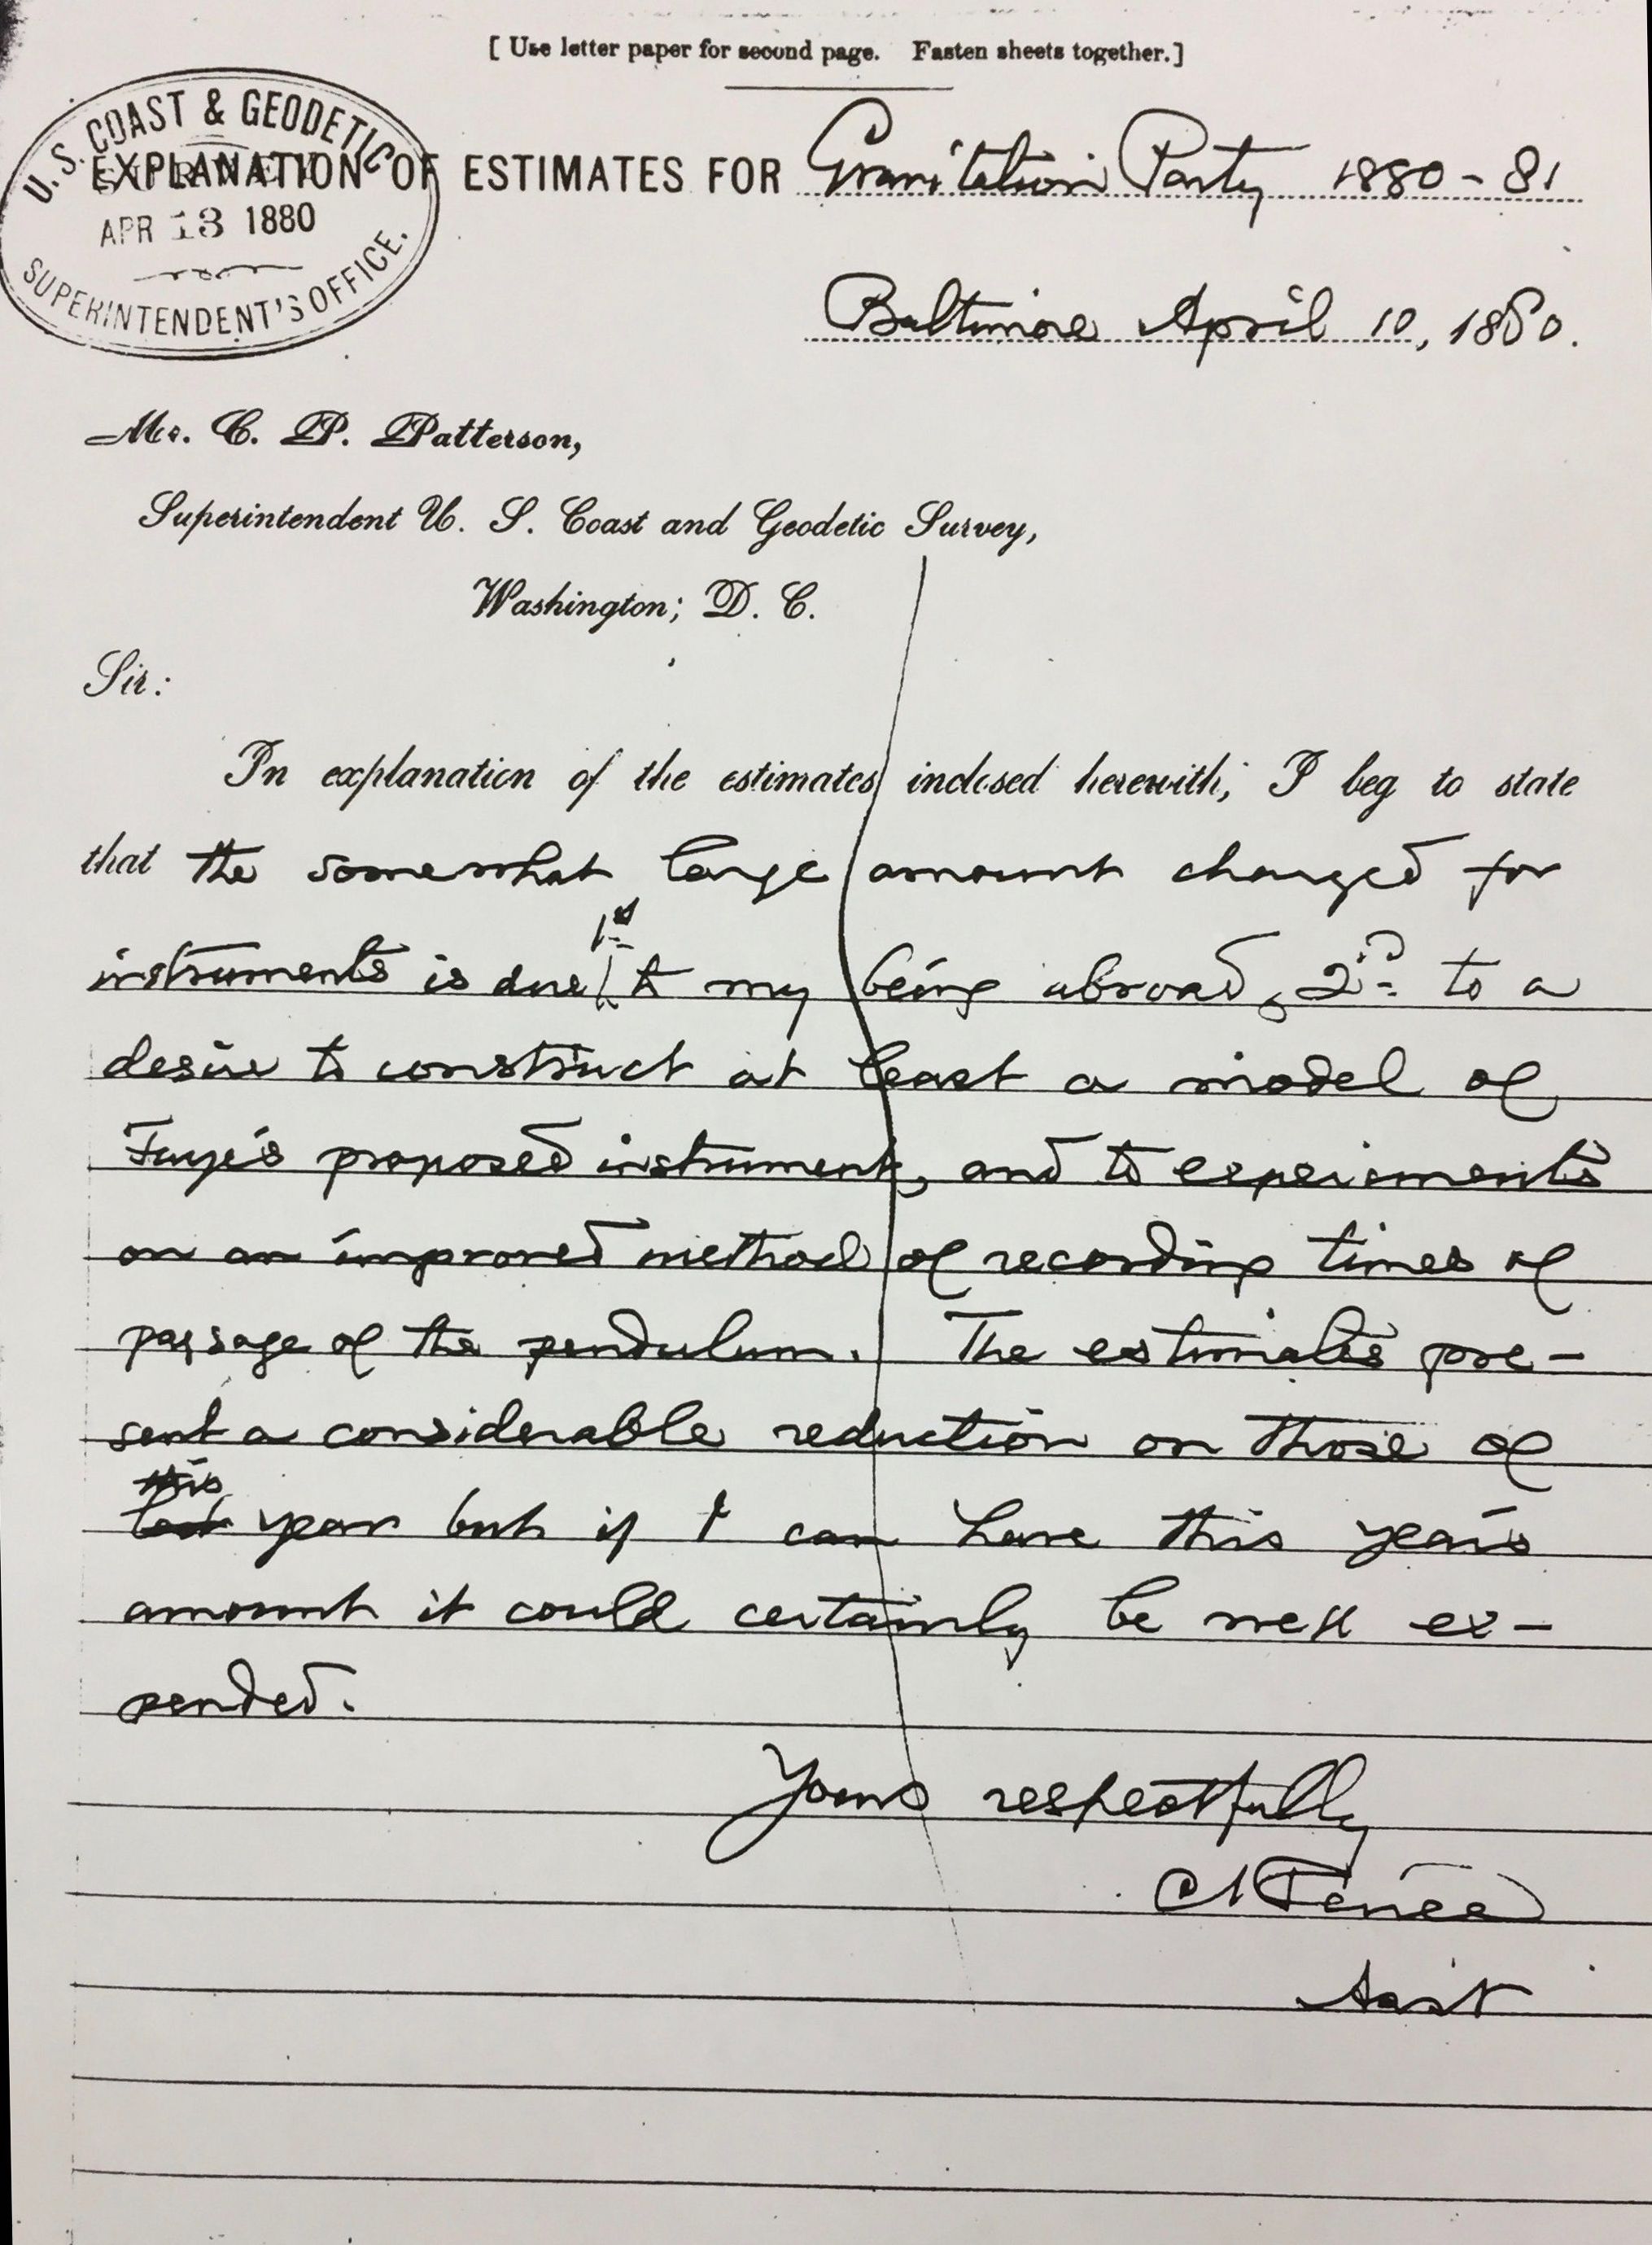 [ Use letter paper for second page. Fasten sheets together.]
U. S. COAST & GEODETIC
SURVEY
APR 13 1880
SUPERINTENDENT'S OFFICE.
EXPLANATION OF ESTIMATES FOR Gravitation Party 1880-81
Baltimore April 10, 1880.
Mr. C. P. Patterson,
Superintendent U. S. Coast and Geodetic Survey,
Washington, D. C.
Sir:
In explanation of the estimates inclosed herewith, I beg to state
that the somewhat large amount charged for
1st
instruments is due to my being abroad, 2d to a
desire to construct at least a model of
Faye's proposed instrument, and to experiments
on an improved method of recording times of
passage of the pendulum. The estimates pre-
sent a considerable reduction on those of
this
last year but if I can have this year's
amount it could certainly be well ex-
pended.
Yours respectfully
C S Peirce
Asst